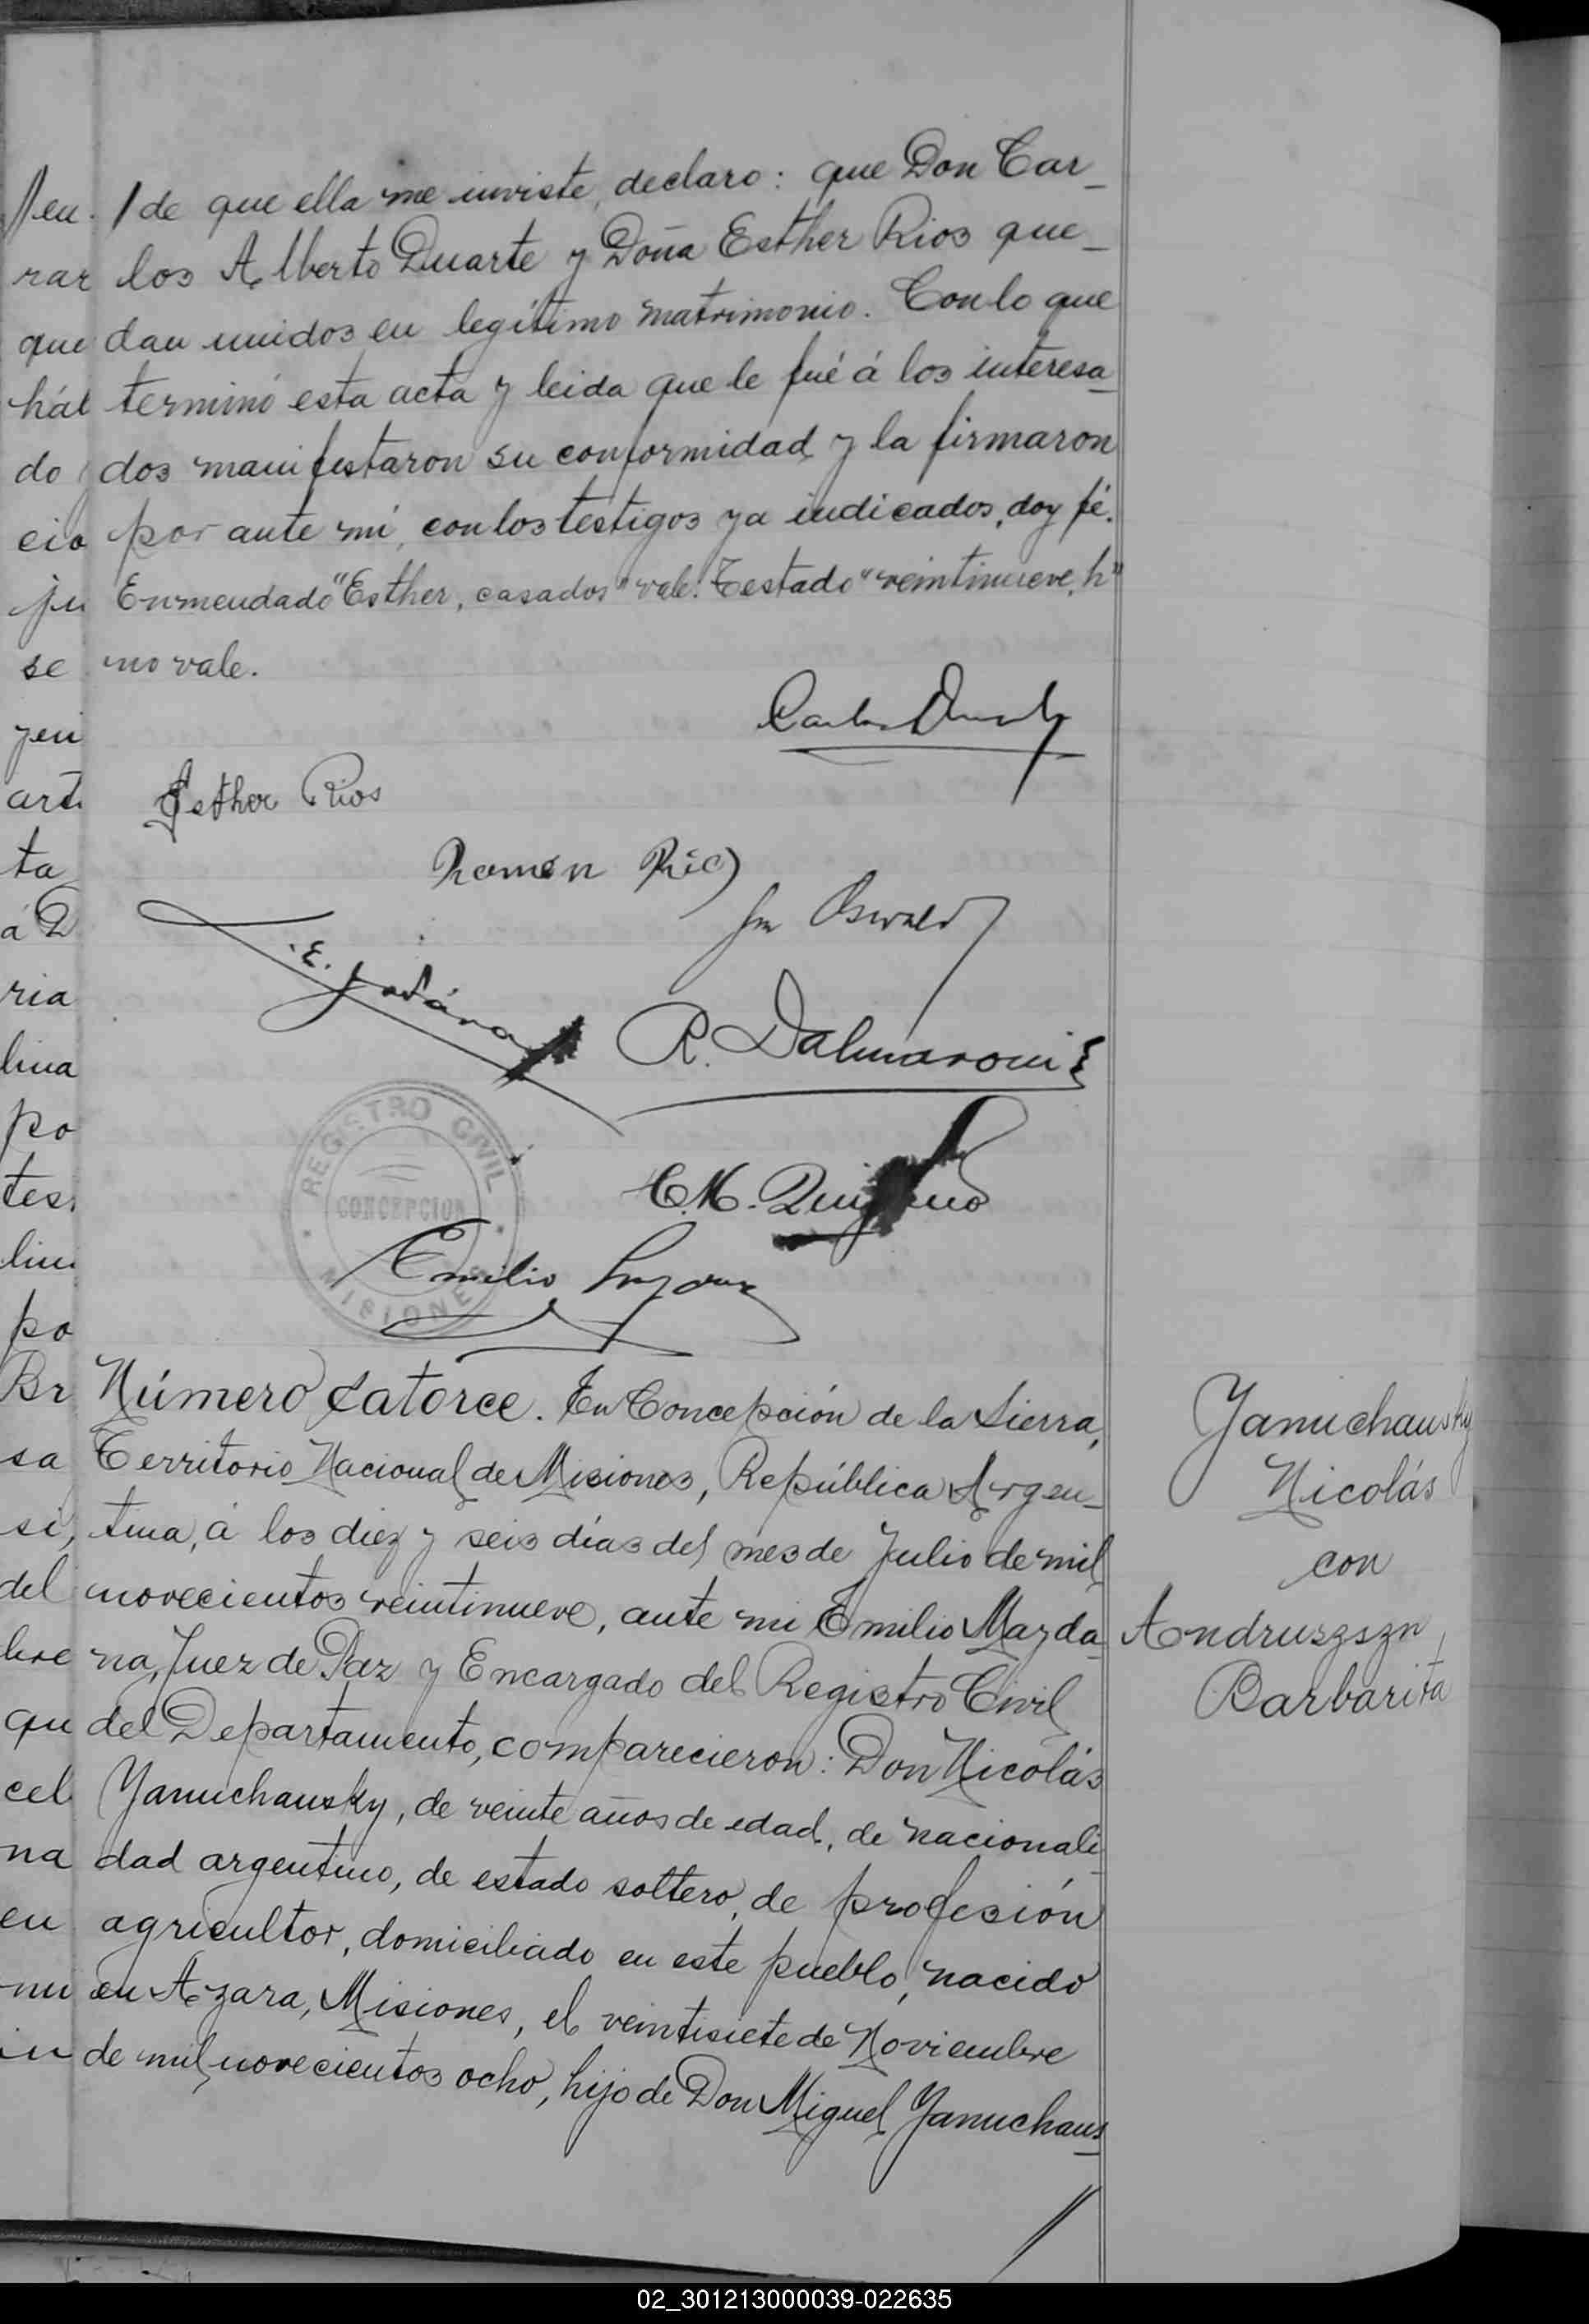 /de que ella me inviste, declaro: que Don Car_
los Alberto Duarte y Doña Esther Rios que_
dan unidos en legítimo matrimonio. Con lo que
terminó esta acta y leida que le fué á los interesa_
dos manifestaron su conformidad y la firmaron
por ante mí, con los testigos ya indicados, doy fé.
Enmendado "Esther, casados" vale. Testado "veintinueve, h"
no vale.
Esther Rios
R. Dalmaroni
REGISTRO CIVIL
CONCEPCION
MISIONES
Emilio
Número Catorce. En Concepción de la Sierra,
Territorio Nacional de Misiones, República Argen_
tina, á los diez y seis días del mes de Julio de mil
novecientos veintinueve, ante mi Emilio Mayda_
na, Juez de Paz y Encargado del Registro Civil
del Departamento, comparecieron: Don Nicolás
Yanuchausky, de veinte años de edad, de nacionali_
dad argentino, de estado soltero, de profesión
agricultor, domiciliado en este pueblo, nacido
en Azara, Misiones, el veintisiete de Noviembre
de mil novecientos ocho, hijo de Don Miguel Yanuchaus_
//
Yanuchausky
Nicolás
con
Andruszszn,
Barbarita
02_301213000039-022635